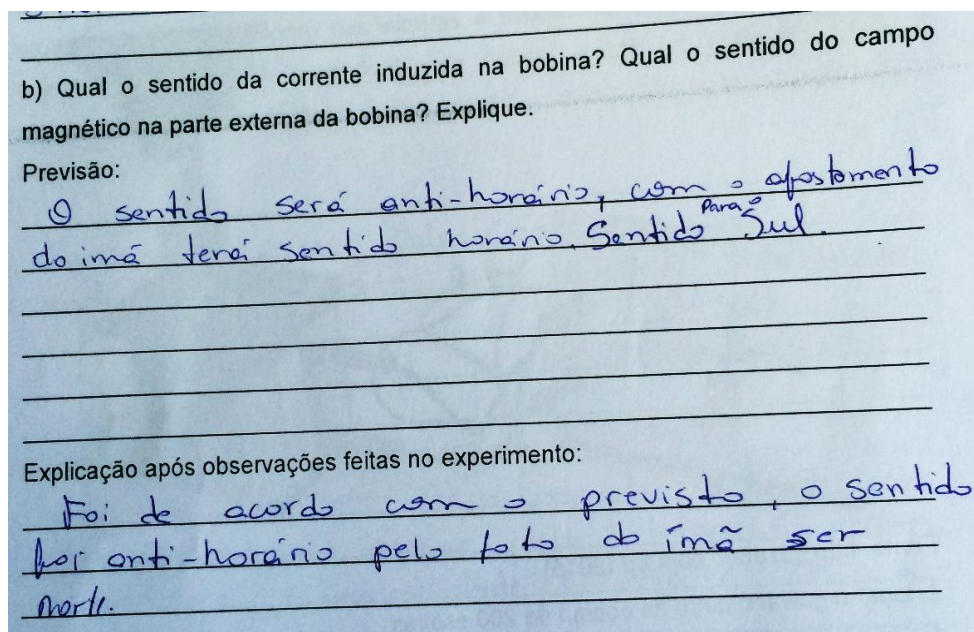 b) Qual o sentido da corrente induzida na bobina? Qual o sentido do campo
magnético na parte externa da bobina? Explique.
Previsão:
O sentido será anti-horário, com o afastamento
do imã terá sentido horário. Sentido para o Sul.
Explicação após observações feitas no experimento:
Foi de acordo com o previsto, o sentido
foi anti-horário pelo fato do ímã ser
norte.